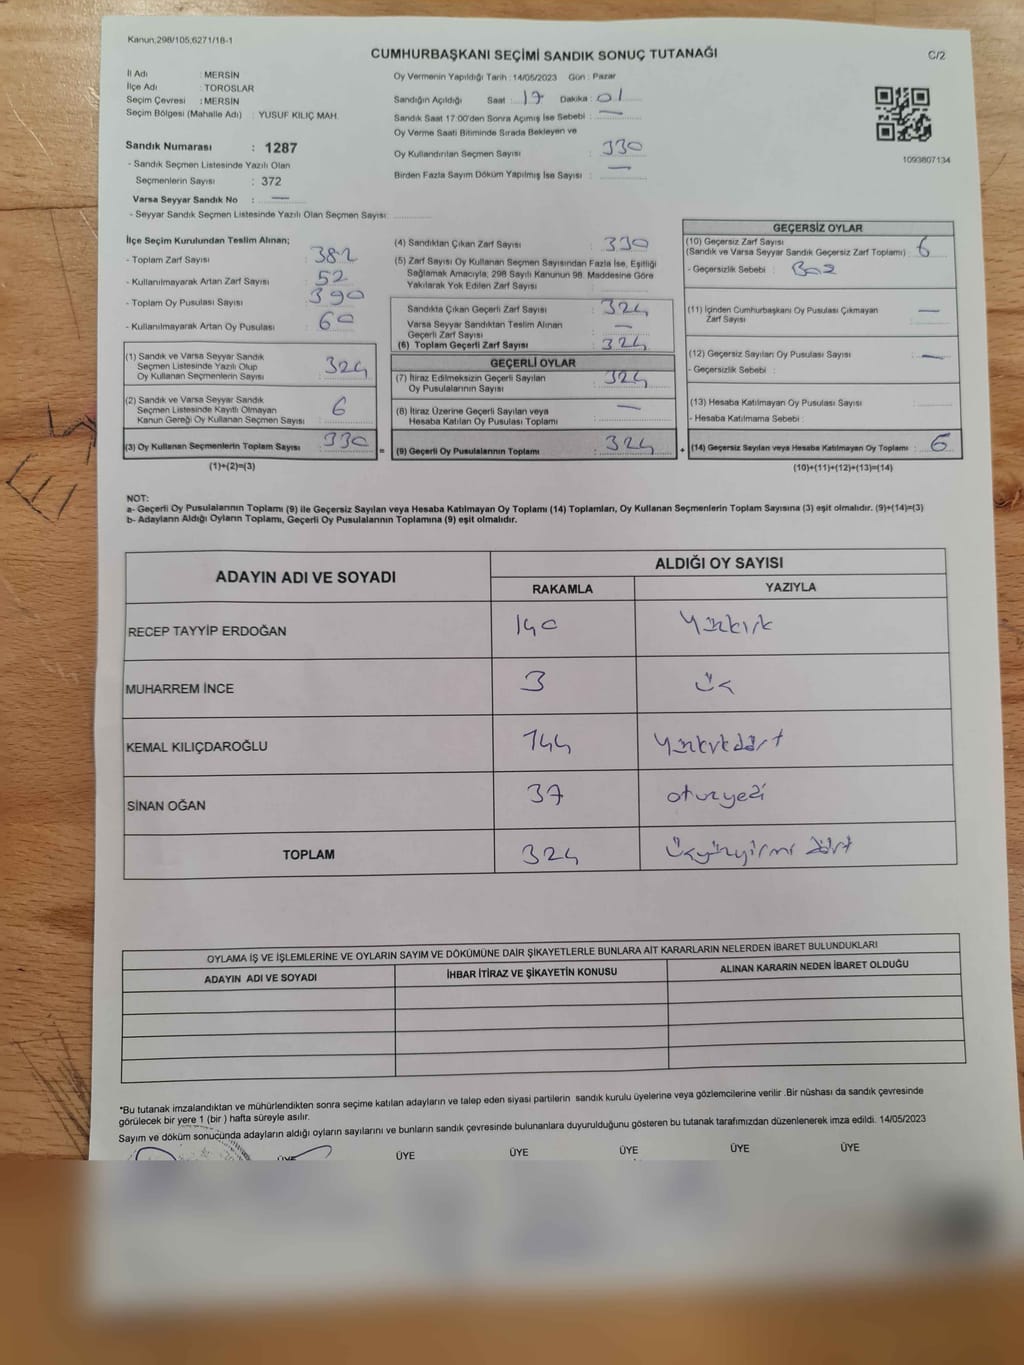 Kanun,298/105,6271/18-1
CUMHURBAŞKANI SEÇİMİ SANDIK SONUÇ TUTANAĞI
C/2
İl Adı : MERSİN
İlçe Adı : TOROSLAR
Seçim Çevresi : MERSİN
Seçim Bölgesi (Mahalle Adı) : YUSUF KILIÇ MAH.
Sandık Numarası : 1287
- Sandık Seçmen Listesinde Yazılı Olan
Seçmenlerin Sayısı : 372
Varsa Seyyar Sandık No : —
- Seyyar Sandık Seçmen Listesinde Yazılı Olan Seçmen Sayısı:
Oy Vermenin Yapıldığı Tarih : 14/05/2023 Gün : Pazar
Sandığın Açıldığı Saat : 17 Dakika : 01
Sandık Saat 17:00'den Sonra Açımış İse Sebebi : —
Oy Verme Saati Bitiminde Sırada Bekleyen ve
Oy Kullandırılan Seçmen Sayısı : 330
Birden Fazla Sayım Döküm Yapılmış İse Sayısı : —
1093807134
İlçe Seçim Kurulundan Teslim Alınan;
- Toplam Zarf Sayısı : 382
- Kullanılmayarak Artan Zarf Sayısı : 52
- Toplam Oy Pusulası Sayısı : 390
- Kullanılmayarak Artan Oy Pusulası : 60
(1) Sandık ve Varsa Seyyar Sandık
Seçmen Listesinde Yazılı Olup
Oy Kullanan Seçmenlerin Sayısı : 324
(2) Sandık ve Varsa Seyyar Sandık
Seçmen Listesinde Kayıtlı Olmayan
Kanun Gereği Oy Kullanan Seçmen Sayısı : 6
(3) Oy Kullanan Seçmenlerin Toplam Sayısı : 330
(1)+(2)=(3)
(4) Sandıktan Çıkan Zarf Sayısı : 330
(5) Zarf Sayısı Oy Kullanan Seçmen Sayısından Fazla İse, Eşitliği
Sağlamak Amacıyla; 298 Sayılı Kanunun 98. Maddesine Göre
Yakılarak Yok Edilen Zarf Sayısı :
Sandıkta Çıkan Geçerli Zarf Sayısı : 324
Varsa Seyyar Sandıktan Teslim Alınan
Geçerli Zarf Sayısı : —
(6) Toplam Geçerli Zarf Sayısı : 324
GEÇERLİ OYLAR
(7) İtiraz Edilmeksizin Geçerli Sayılan
Oy Pusulalarının Sayısı : 324
(8) İtiraz Üzerine Geçerli Sayılan veya
Hesaba Katılan Oy Pusulası Toplamı : —
= (9) Geçerli Oy Pusulalarının Toplamı : 324
GEÇERSİZ OYLAR
(10) Geçersiz Zarf Sayısı
(Sandık ve Varsa Seyyar Sandık Geçersiz Zarf Toplamı) : 6
- Geçersizlik Sebebi : Boz
(11) İçinden Cumhurbaşkanı Oy Pusulası Çıkmayan
Zarf Sayısı : —
(12) Geçersiz Sayılan Oy Pusulası Sayısı : —
- Geçersizlik Sebebi :
(13) Hesaba Katılmayan Oy Pusulası Sayısı :
- Hesaba Katılmama Sebebi :
+ (14) Geçersiz Sayılan veya Hesaba Katılmayan Oy Toplamı : 6
(10)+(11)+(12)+(13)=(14)
NOT:
a- Geçerli Oy Pusulalarının Toplamı (9) ile Geçersiz Sayılan veya Hesaba Katılmayan Oy Toplamı (14) Toplamları, Oy Kullanan Seçmenlerin Toplam Sayısına (3) eşit olmalıdır. (9)+(14)=(3)
b- Adayların Aldığı Oyların Toplamı, Geçerli Oy Pusulalarının Toplamına (9) eşit olmalıdır.
ADAYIN ADI VE SOYADI
ALDIĞI OY SAYISI
RAKAMLA YAZIYLA
RECEP TAYYİP ERDOĞAN 140 Yüzkırk
MUHARREM İNCE 3 üç
KEMAL KILIÇDAROĞLU 144 Yüzkırkdört
SİNAN OĞAN 37 otuzyedi
TOPLAM 324 üçyüzyirmi dört
OYLAMA İŞ VE İŞLEMLERİNE VE OYLARIN SAYIM VE DÖKÜMÜNE DAİR ŞİKAYETLERLE BUNLARA AİT KARARLARIN NELERDEN İBARET BULUNDUKLARI
ADAYIN ADI VE SOYADI İHBAR İTİRAZ VE ŞİKAYETİN KONUSU ALINAN KARARIN NEDEN İBARET OLDUĞU
*Bu tutanak imzalandıktan ve mühürlendikten sonra seçime katılan adayların ve talep eden siyasi partilerin sandık kurulu üyelerine veya gözlemcilerine verilir .Bir nüshası da sandık çevresinde
görülecek bir yere 1 (bir ) hafta süreyle asılır.
Sayım ve döküm sonucunda adayların aldığı oyların sayılarını ve bunların sandık çevresinde bulunanlara duyurulduğunu gösteren bu tutanak tarafımızdan düzenlenerek imza edildi. 14/05/2023
ÜYE ÜYE ÜYE ÜYE ÜYE ÜYE